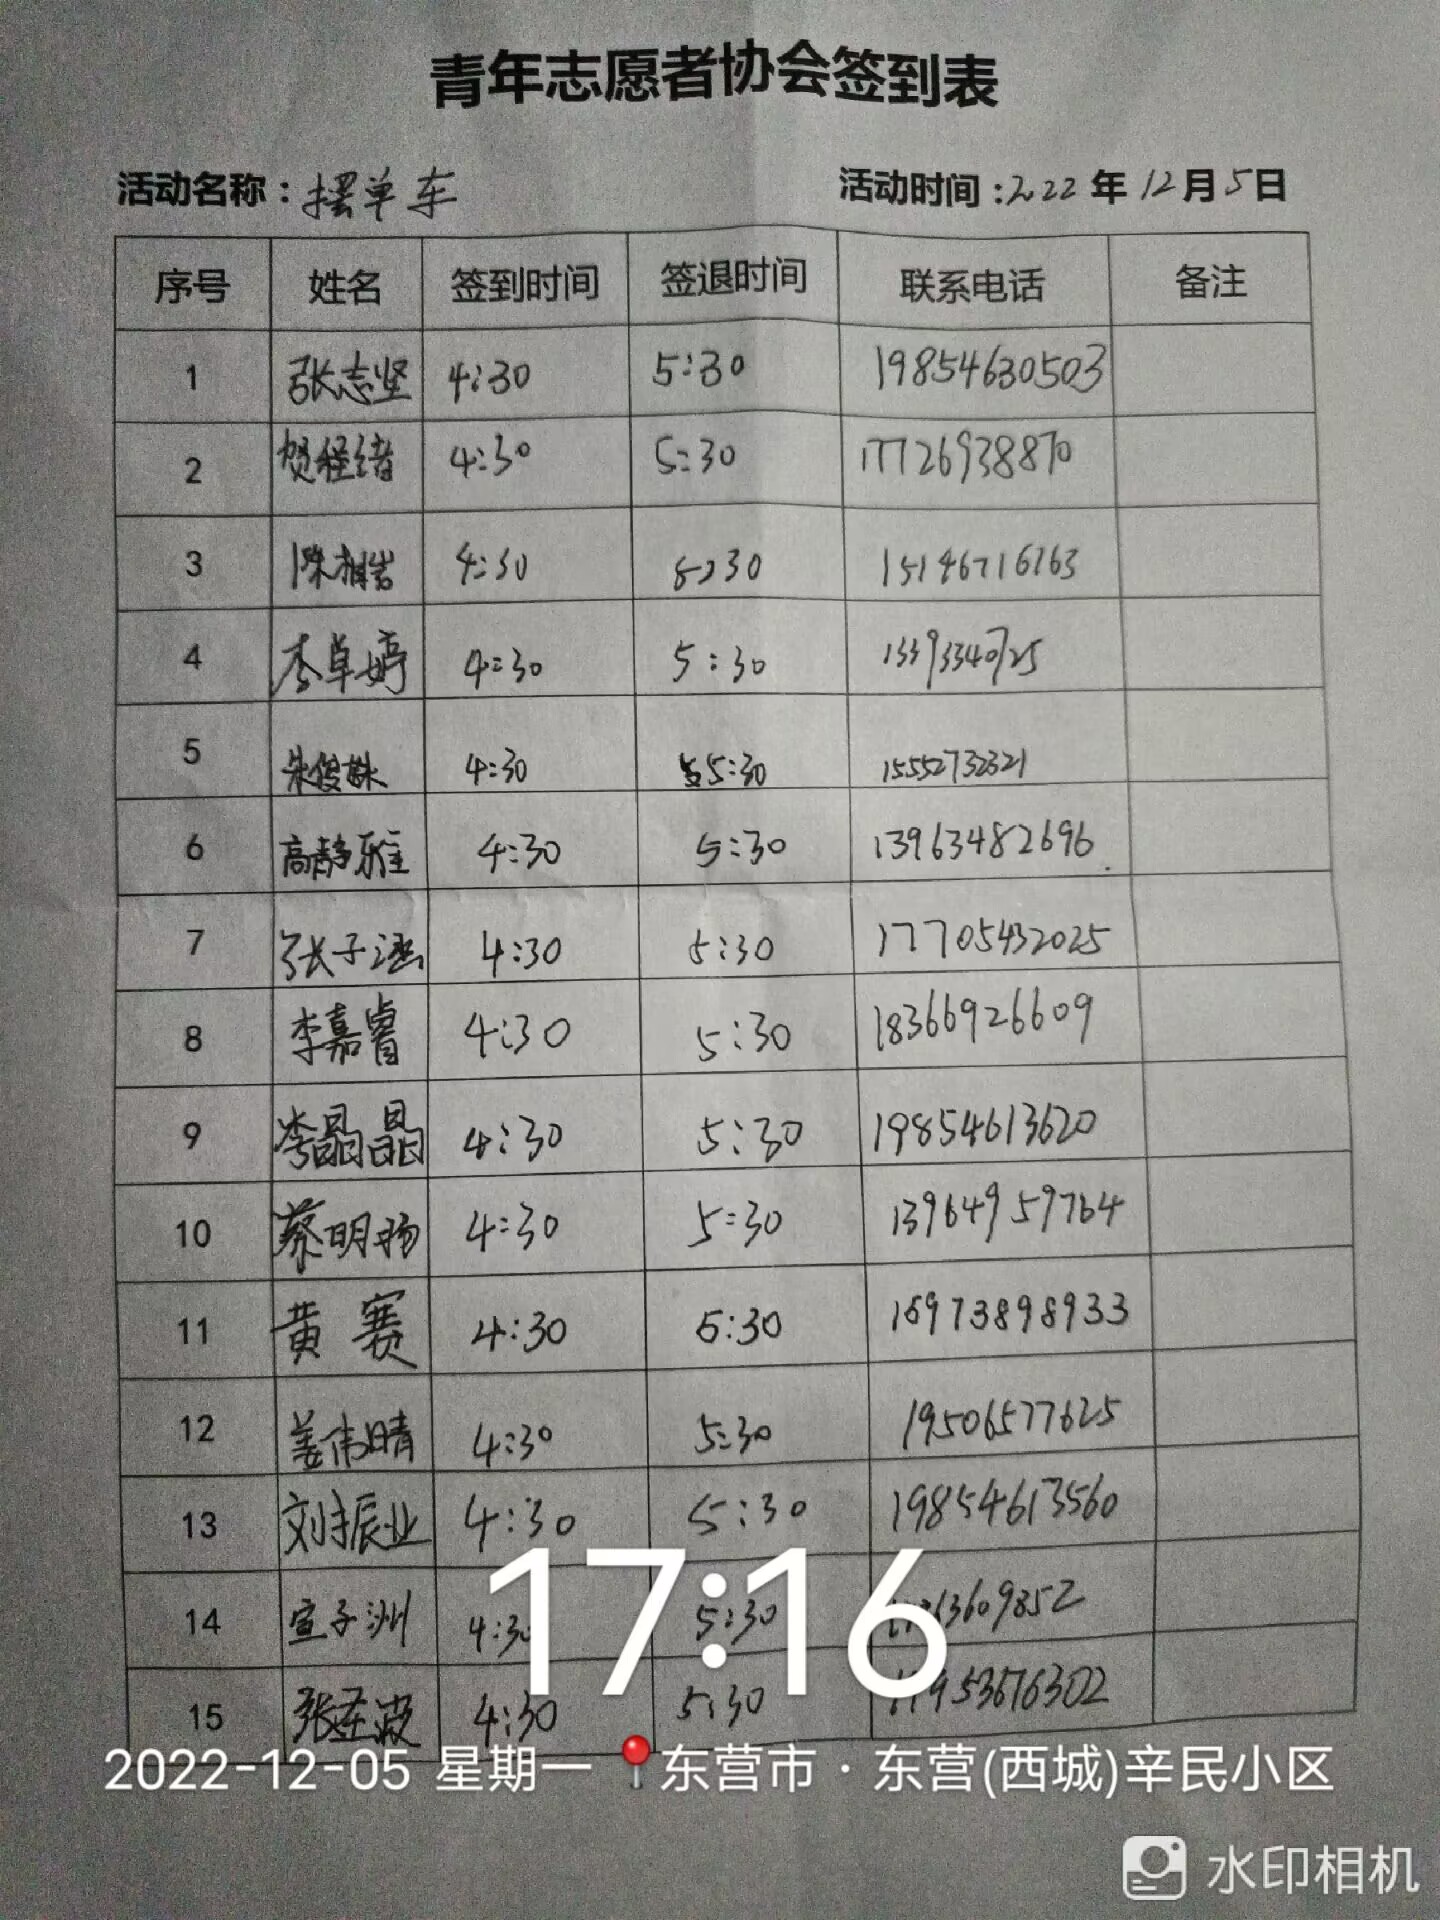 青年志愿者协会签到表
活动名称：摆单车 活动时间：2022年12月5日
序号 姓名 签到时间 签退时间 联系电话 备注
1 张志坚 4:30 5:30 19854630503
2 贺经绪 4:30 5:30 17726938870
3 4:30 5:30 15146716763
4 李卓婷 4:30 5:30 13393340725
5 朱俊姝 4:30 5:30 15552732321
6 高静雅 4:30 5:30 13963482696
7 张子涵 4:30 5:30 17705432025
8 李嘉睿 4:30 5:30 18366926609
9 李晶晶 4:30 5:30 19854613620
10 蔡明扬 4:30 5:30 13964959764
11 黄赛 4:30 5:30 15973898933
12 姜伟晴 4:30 5:30 19506577625
13 刘振业 4:30 5:30 19854613560
14 宣子洲 4:30 5:30
17:16
15 张圣波 4:30 5:30
2022-12-05 星期一 东营市·东营(西城)辛民小区
水印相机